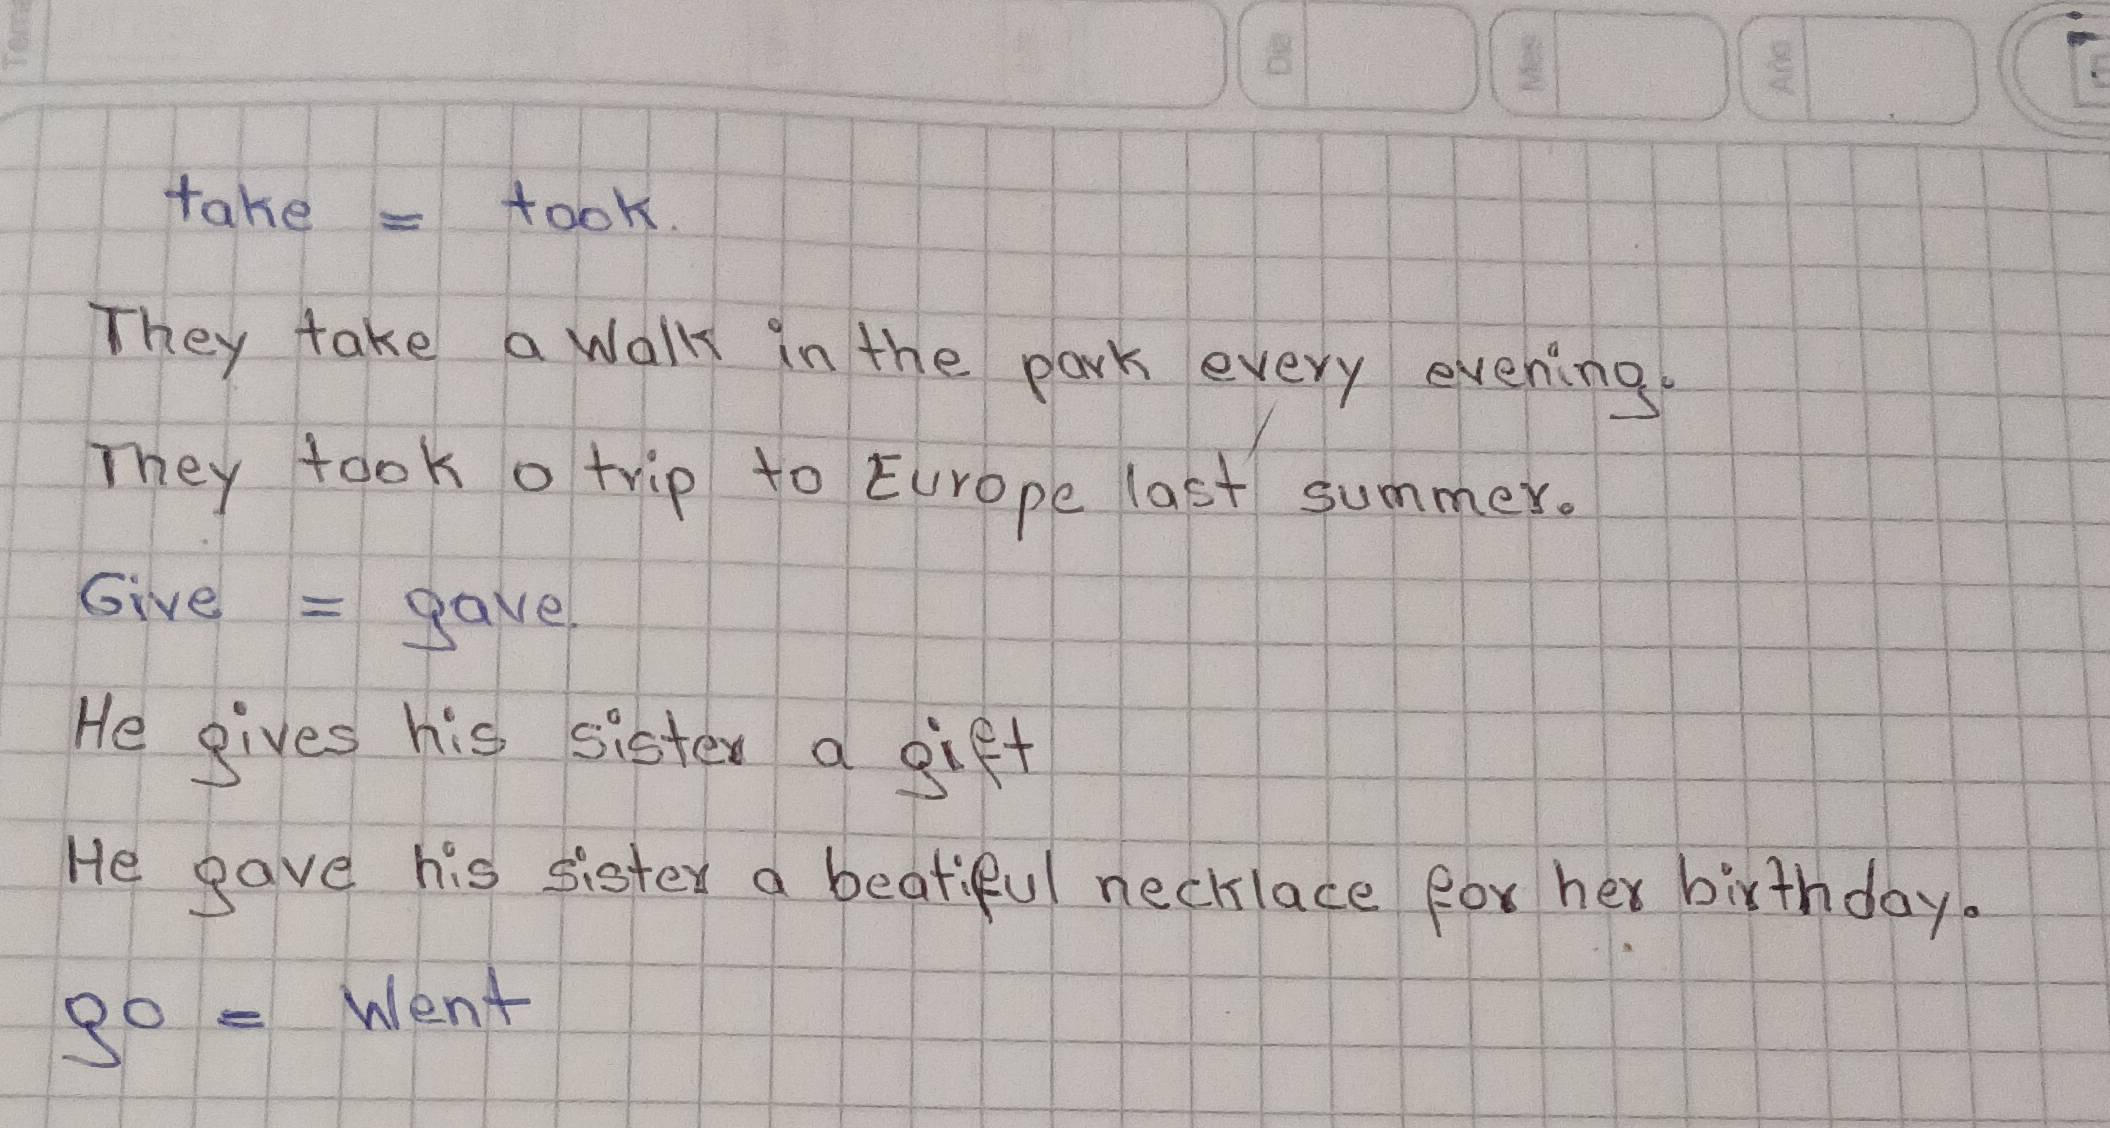 Tema Dia Mes Año
take = took.
They take a Walk in the park every evening.
They took a trip to Europe last summer.
Give = gave.
He gives his sister a gift
He gave his sister a beatiful necklace for her birthday.
go = Went